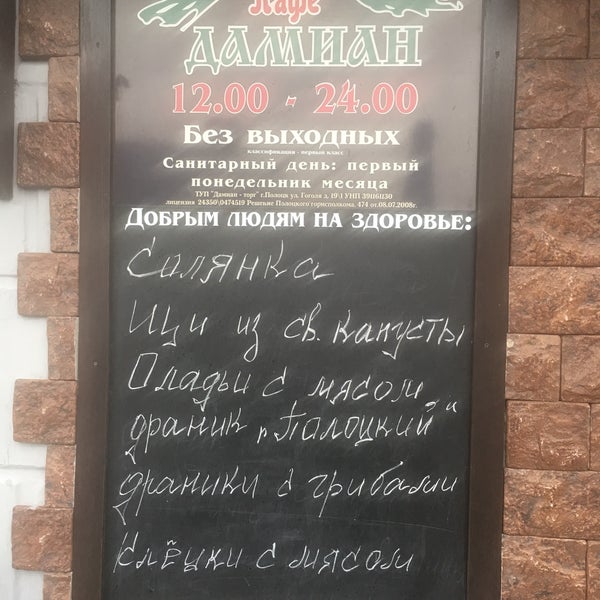 Кафе
ДАМИАН
12.00 - 24.00
Без выходных
классификация - первый класс
Санитарный день: первый
понедельник месяца
ТУП "Дамиан - торг" г.Полоцк ул. Гоголя д. 19\1 УНП 391161130
лицензия 24350\0474519 Решение Полоцкого горисполкома. 474 от.08.07.2008г.
Добрым людям на здоровье:
Солянка
Щи из св. капусты
Оладьи с мясом
драник „Палоцкий“
драники с грибами
Клёцки с мясом